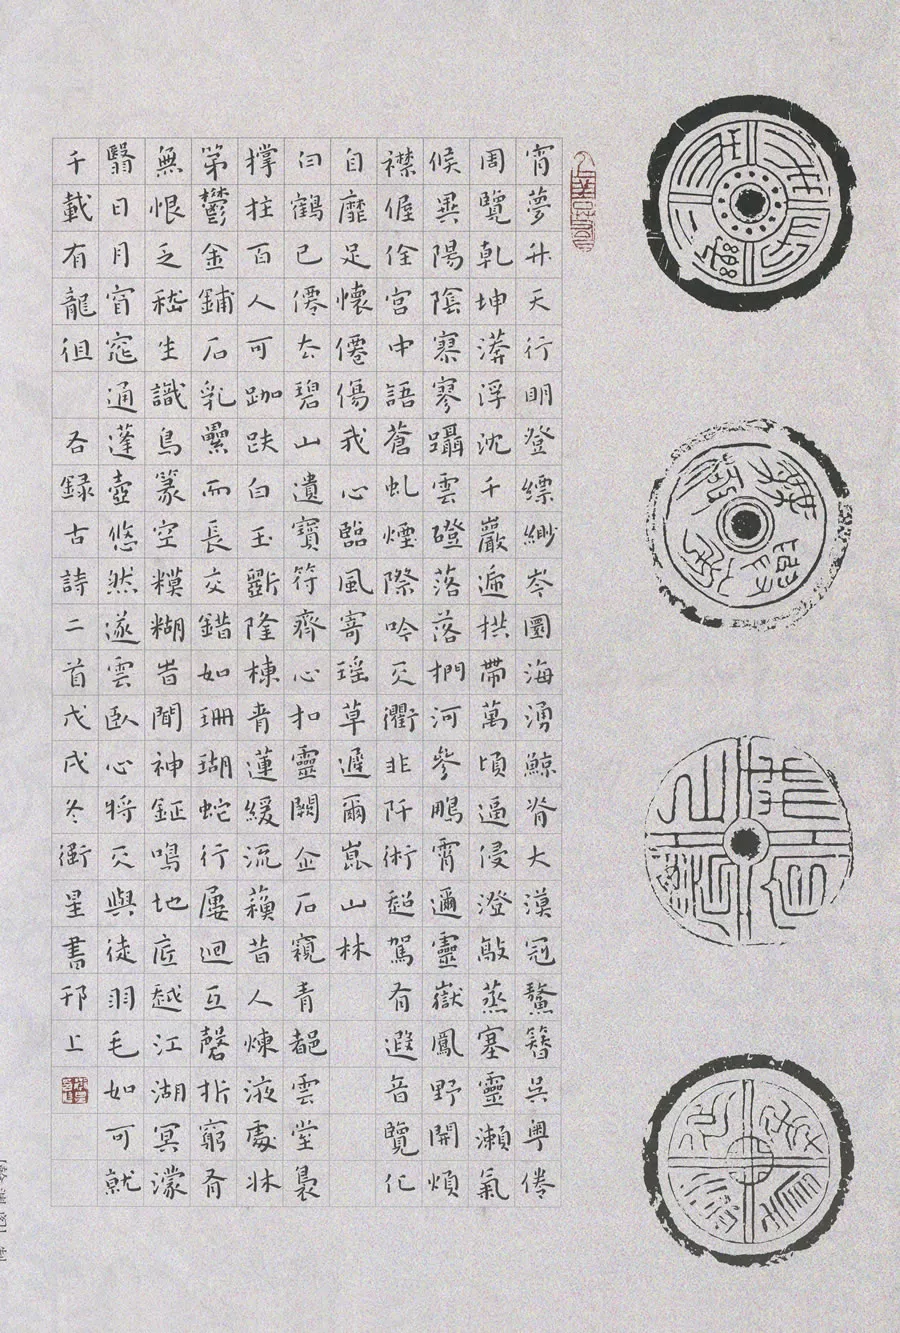 宵夢升天行明登縹緲岑圜海湧鯨脊大漠冠鰲簪吳粵倦
周覽乾坤漭浮沈千巖遞拱帶萬頃逼侵澄敲蒸塞靈瀨氣
候異陽陰寥寥躡雲磴落落捫河參鵬霄邇靈嶽鳳野開煩
襟偓佺宮中語蒼虬煙際吟天衢非阡術超駕有遐音覽化
自靡足懷僊傷我心臨風寄瑤草遲爾崑山林
曰鶴已僊去碧山遺寶符齊心扣靈闕企石窺青都雲堂裊
撐拄百人可跏趺白玉斲隆棟青蓮緩流蘇昔人煉液處牀
第鬱金鋪石乳纍而長交錯如珊瑚蛇行屢迴互磬折窮有
無恨乏嵇生識鳥篆空糢糊昔聞神鉦鳴地底越江湖冥濛
翳日月窅窕通蓬壺悠然遂雲臥心將天與徒羽毛如可就
千載有龍徂 右録古詩二首戊戌冬衛星書邗上